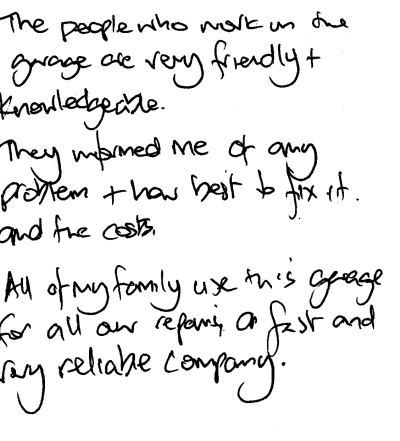 The people who work in the
garage are very friendly +
knowledgeable.
They informed me of any
problem + how best to fix it.
and the costs.
All of my family use this garage
for all our repairs, a fast and
very reliable company.